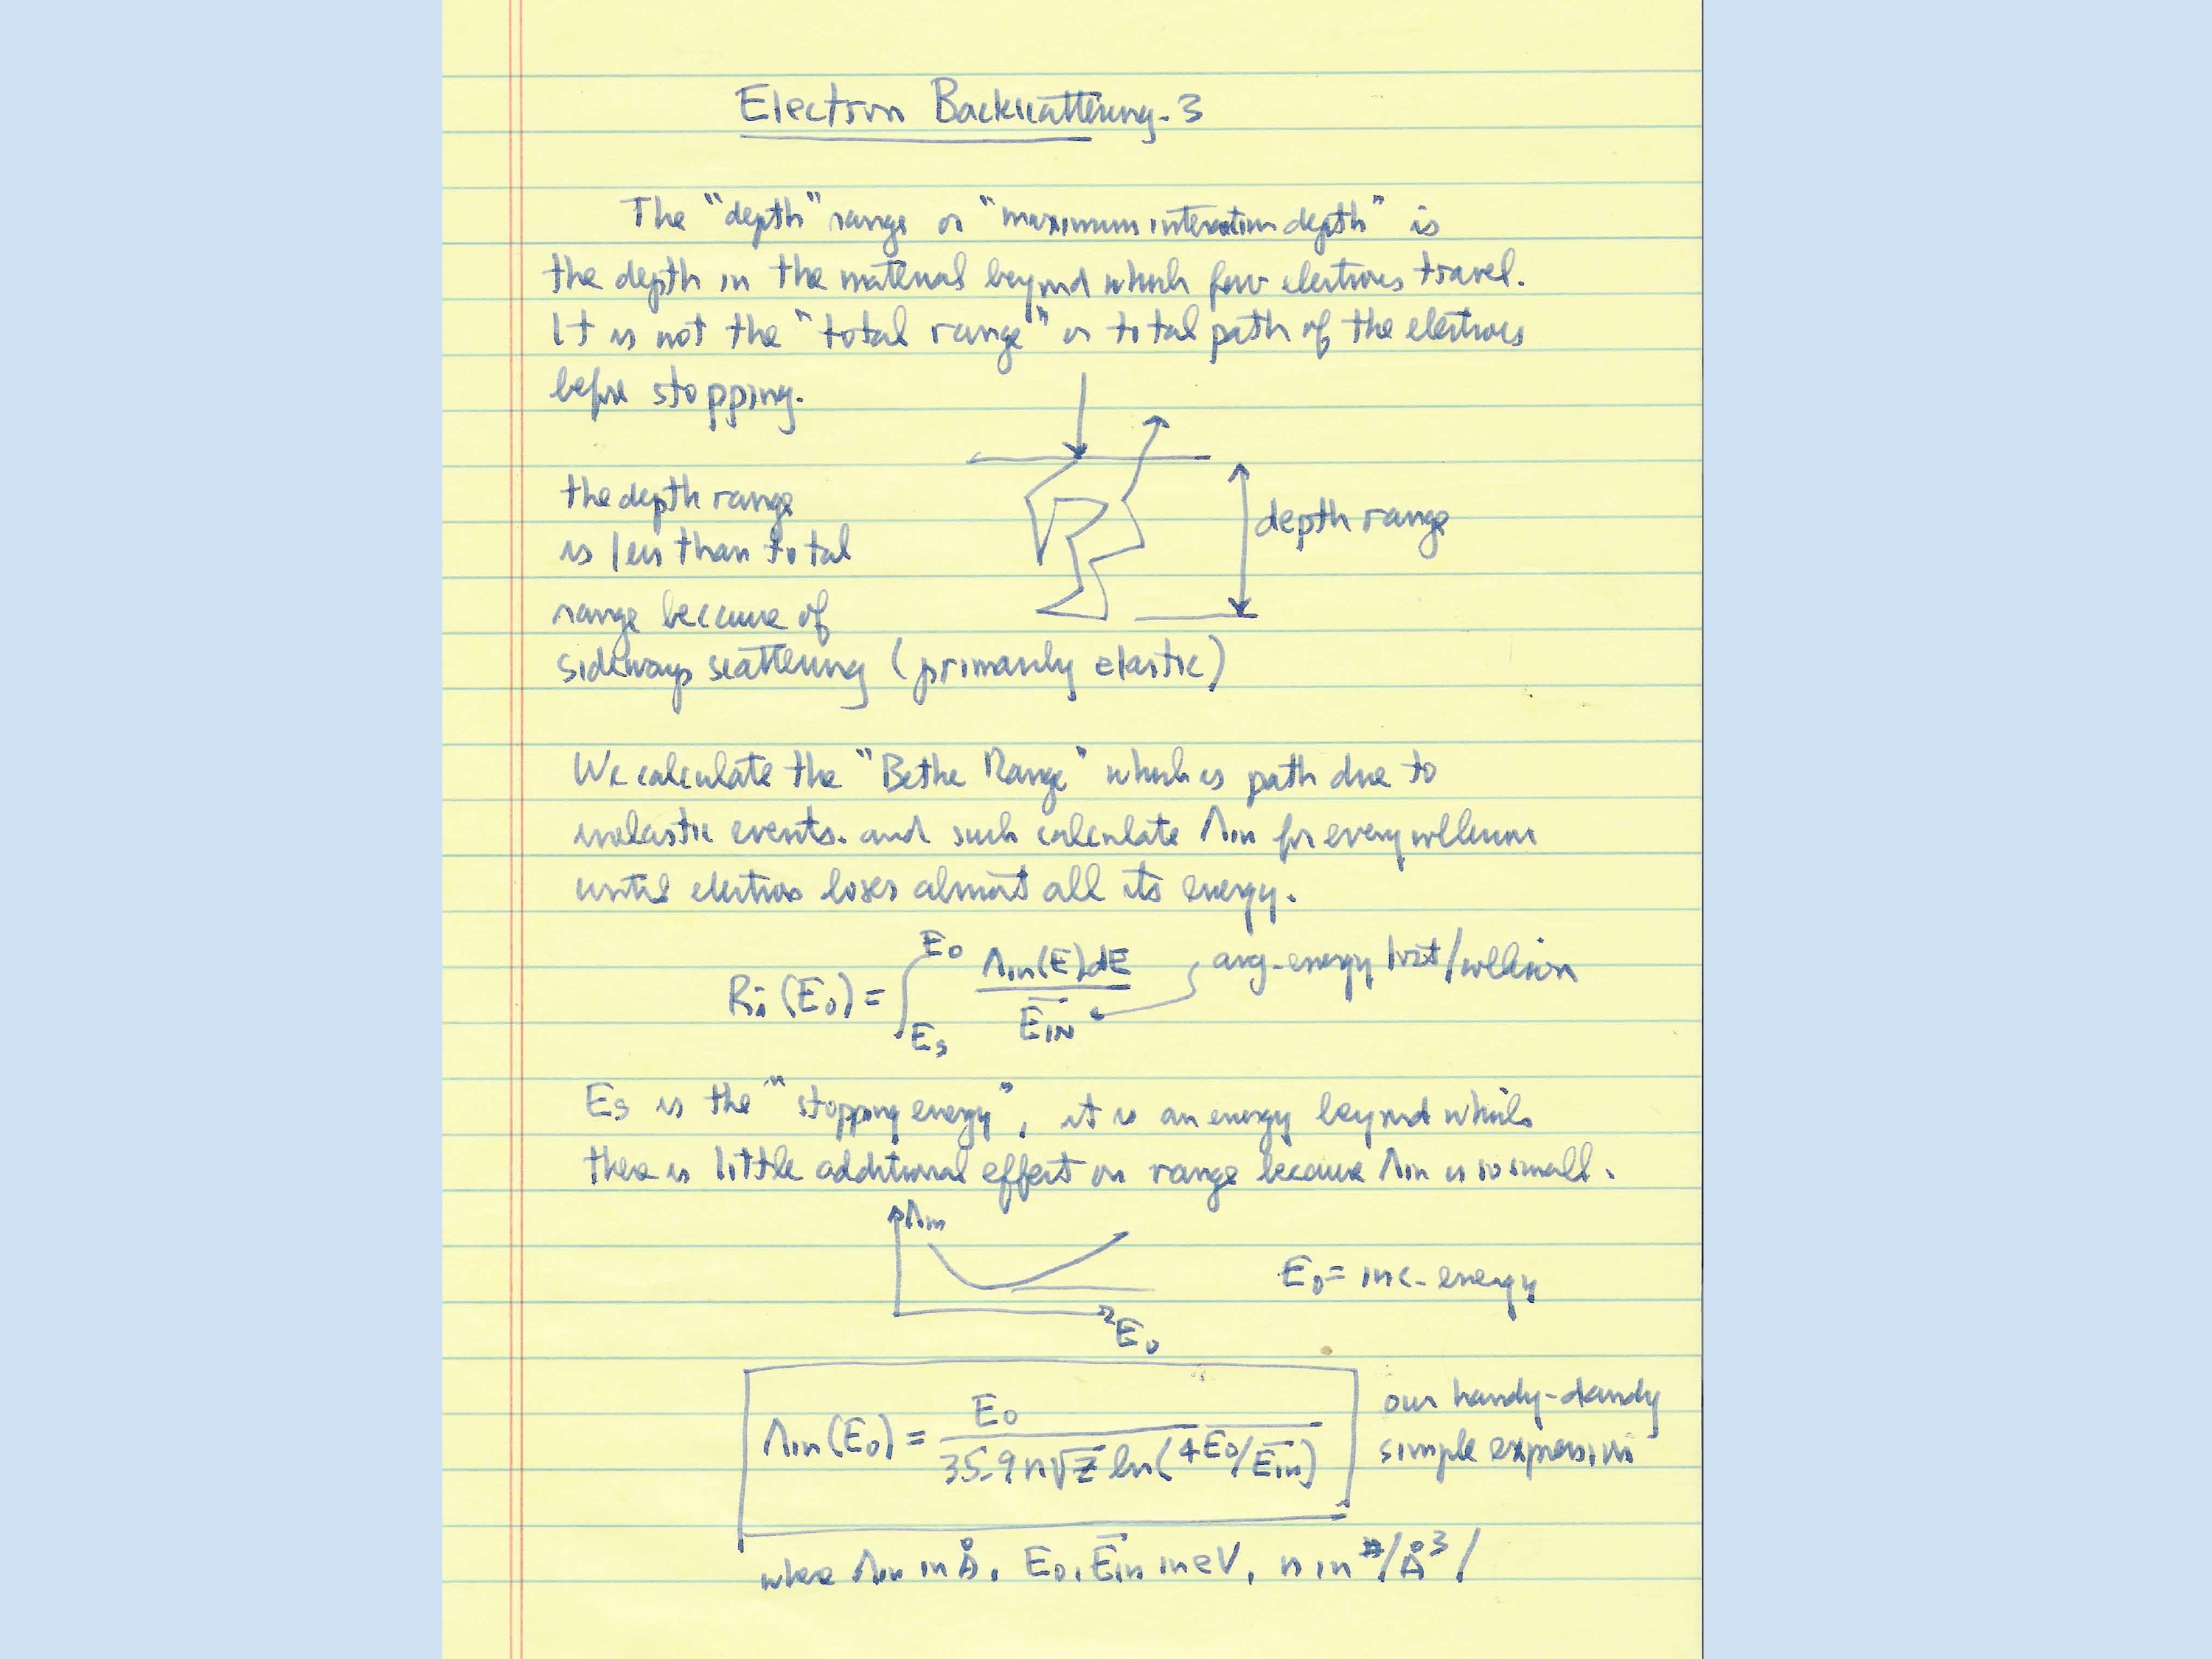 Electron Backscattering-3
The "depth" range or "maximum interaction depth" is
the depth in the material beyond which few electrons travel.
It is not the "total range" or total path of the electrons
before stopping.
the depth range
is less than total
range because of
sideways scattering (primarily elastic)
depth range
We calculate the "Bethe Range" which is path due to
inelastic events. and such calculate Λin for every collision
until electron loses almost all its energy.
Ri (E0) = ∫ E0 Es Λin(E)dE / E̅IN
avg-energy lost/collision
Es is the "stopping energy", it is an energy beyond which
there is little additional effect on range because Λin is so small.
Λin
E0
E0 = inc- energy
Λin (E0) = E0 / 35.9 n√z ln(4E0/E̅in)
our handy-dandy
simple expression
where Λin in Å, E0, E̅in in eV, n in #/Å3/